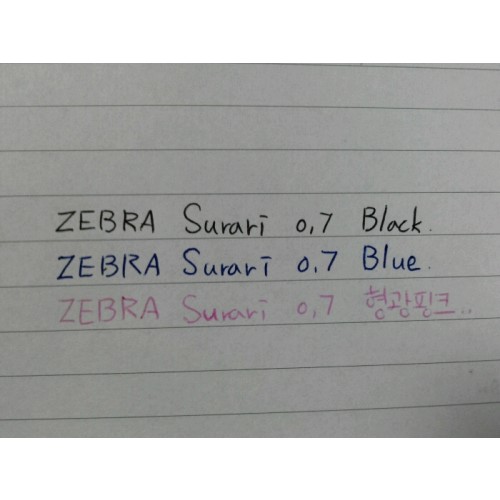 ZEBRA Surari 0,7 Black.
ZEBRA Surari 0.7 Blue.
ZEBRA Surari 0,7 형광핑크..